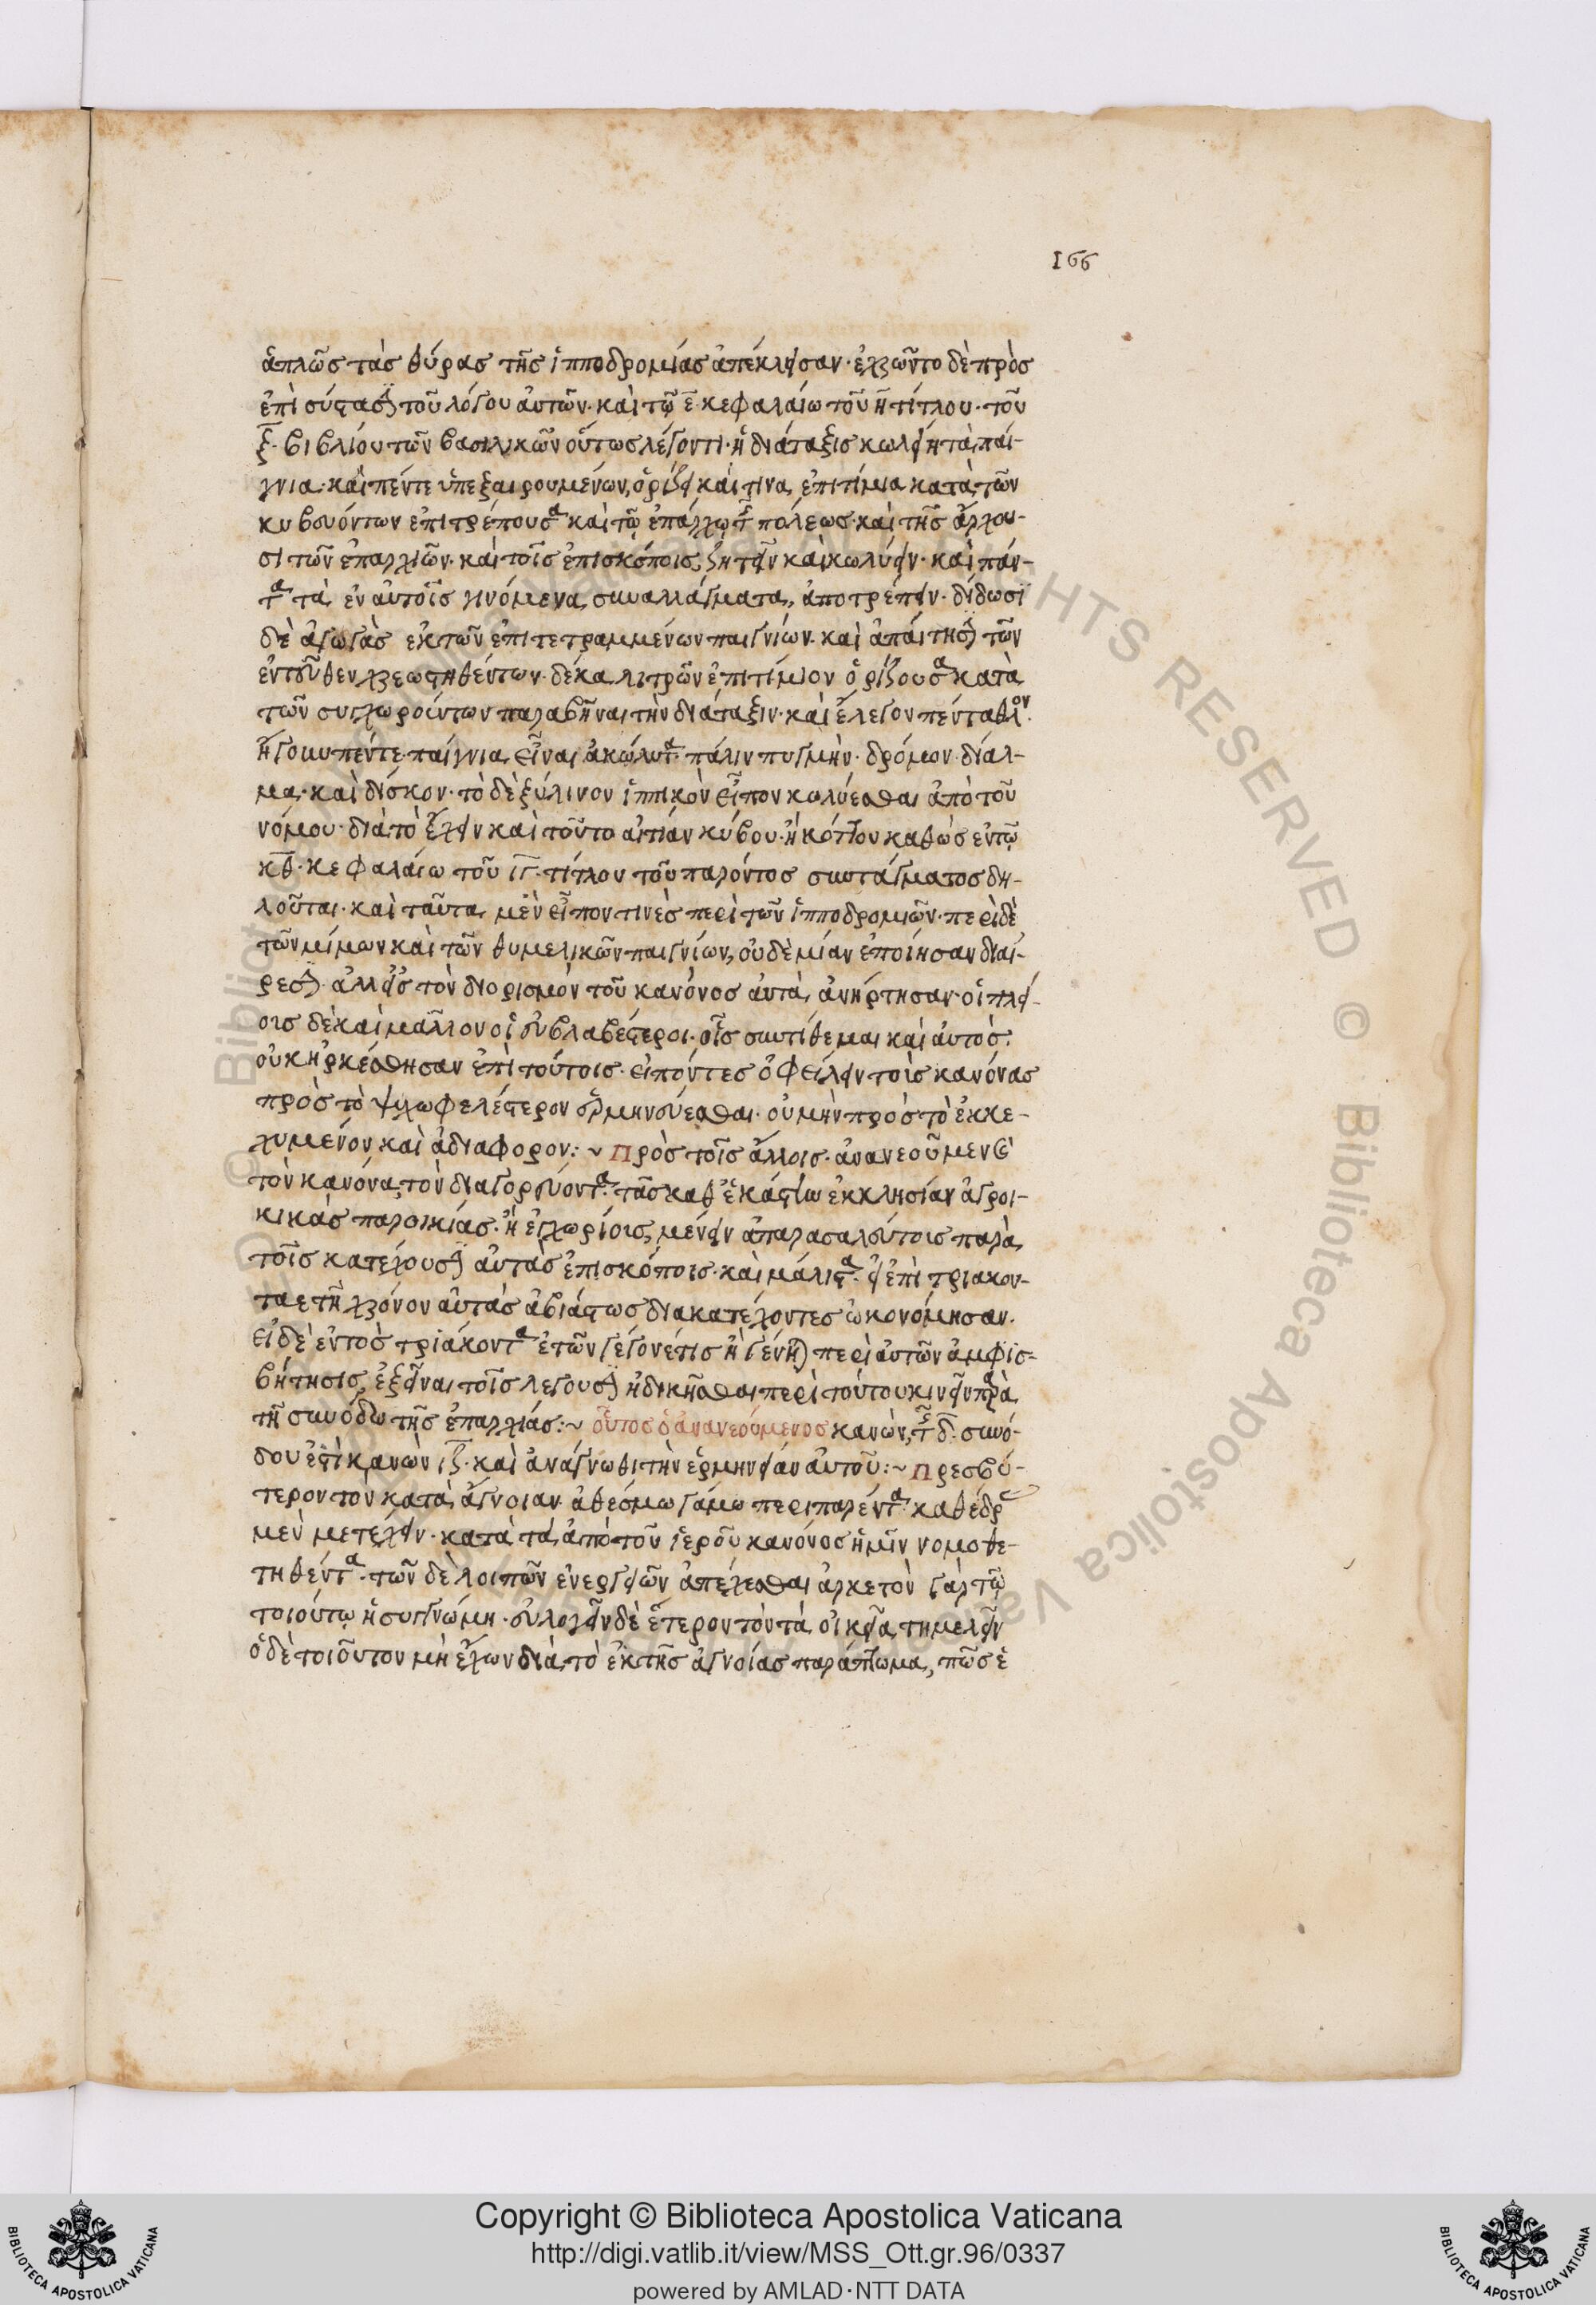 166
ἁπλῶς τὰς θύρας τῆς ἱπποδρομίας ἀπέκλεισαν· ἐχρῶντο δὲ πρὸς
ἐπισύστασιν τοῦ λόγου αὐτῶν· καὶ τῷ ε̅· κεφαλαίω τοῦ η̅ τίτλου· τοῦ
ξ̅· βιβλίου τῶν βασιλικῶν οὕτως λέγοντι· ἡ διάταξις κωλύει τὰ παί-
γνια· καὶ πέντε ὑπεξαιρουμένων, ὁρίζει καί τινα ἐπιτίμια κατὰ τῶν
κυβευόντων ἐπιτρέπουσα καὶ τῷ ἐπάρχῳ τῆς πόλεως· καὶ τοῖς ἄρχου-
σι τῶν ἐπαρχιῶν· καὶ τοῖς ἐπισκόποις, ζητεῖν καὶ κωλύειν· καὶ πάν-
τα τὰ ἐν αὐτοῖς γινόμενα συναλλάγματα, ἀποτρέπειν· δίδωσι
δὲ ἀγωγὰς ἐκ τῶν ἐπιτετραμμένων παιγνίων· καὶ ἀπαίτησιν τῶν
ἐντεῦθεν χρεωστηθέντων· δέκα λιτρῶν ἐπιτίμιον ὁρίζουσα κατὰ
τῶν συγχωρούντων παραβῆναι τὴν διάταξιν· καὶ ἔλεγον πένταθλον·
ἤγουν πέντε παίγνια εἶναι ἀκώλυτα· πάλιν πυγμὴν· δρόμον· δίαλ-
μα· καὶ δίσκον· τὸ δὲ ξύλινον ἱππικὸν εἶπον κωλύεσθαι ἀπὸ τοῦ
νόμου· διὰ τὸ ἔχειν καὶ τοῦτο αἰτίαν κύβου· ἢ κόττου καθὼς ἐν τῷ
κθ̅· κεφαλαίω τοῦ ιγ̅· τίτλου τοῦ παρόντος συντάγματος δη-
λοῦται· καὶ ταῦτα μὲν εἶπον τινὲς περὶ τῶν ἱπποδρομιῶν· περὶ δὲ
τῶν μίμων καὶ τῶν θυμελικῶν παιγνίων, οὐδὲ μίαν ἐποίησαν διαί-
ρεσιν· ἀλλ' εἰς τὸν διορισμὸν τοῦ κανόνος αὐτὰ ἀνήρτησαν· οἱ πλεί-
οις δὲ καὶ μᾶλλον οἱ εὐλαβέστεροι· οἷς συντίθεμαι καὶ αὐτὸς·
οὐκ ἠρκέσθησαν ἐπὶ τούτοις· εἰπόντες ὀφείλειν τοὺς κανόνας
πρὸς τὸ ψυχωφελέστερον ἑρμηνεύεσθαι· οὐ μὴν πρὸς τὸ ἐκκε-
χυμένον καὶ ἀδιάφορον:~ Πρὸς τοῖς ἄλλοις· ἀνανεοῦμεν καὶ
τὸν κανόνα, τὸν διαγορεύοντα· τὰς καθ' ἑκάστην ἐκκλησίαν ἀγροι-
κικὰς παροικίας· ἢ ἐγχωρίους, μένειν ἀπαρασαλεύτους παρὰ
τοῖς κατέχουσιν αὐτὰς ἐπισκόποις· καὶ μάλιστα· εἰ ἐπὶ τριακον-
ταετῆ χρόνον αὐτὰς ἀβιάστως διακατέχοντες ὠκονόμησαν·
εἰ δὲ ἐντὸς τριάκοντα ἐτῶν γέγονέ τις ἢ γένηται περὶ αὐτῶν ἀμφισ-
βήτησις, ἐξεῖναι τοῖς λέγουσιν ἠδικῆσθαι περὶ τούτου κινεῖν παρὰ
τῇ συνόδω τῆς ἐπαρχίας:~ οὗτος ὁ ἀνανεούμενος κανὼν, τῆς δ̅· συνό-
δου ἐστὶ κανὼν ιζ̅· καὶ ἀνάγνωθι τὴν ἑρμηνείαν αὐτοῦ:~ Πρεσβύ-
τερον τὸν κατὰ ἄγνοιαν ἀθέσμω γάμω περιπαρέντα· καθέδρας
μὲν μετέχειν· κατὰ τὰ ἀπὸ τοῦ ἱεροῦ κανόνος ἡμῖν νομοθε-
τηθέντα· τῶν δὲ λοιπῶν ἐνεργειῶν ἀπέχεσθαι ἀρκετὸν γὰρ τῷ
τοιούτῳ ἡ συγγνώμη· εὐλογεῖν δὲ ἕτερον τὸν τὰ οἰκεῖα τημελεῖν
ὁ δὲ τοιοῦτον μὴ ἔχων διὰ τὸ ἐκ τῆς ἀγνοίας παράπτωμα, πῶς ἑ
Copyright © Biblioteca Apostolica Vaticana
http://digi.vatlib.it/view/MSS_Ott.gr.96/0337
powered by AMLAD·NTT DATA